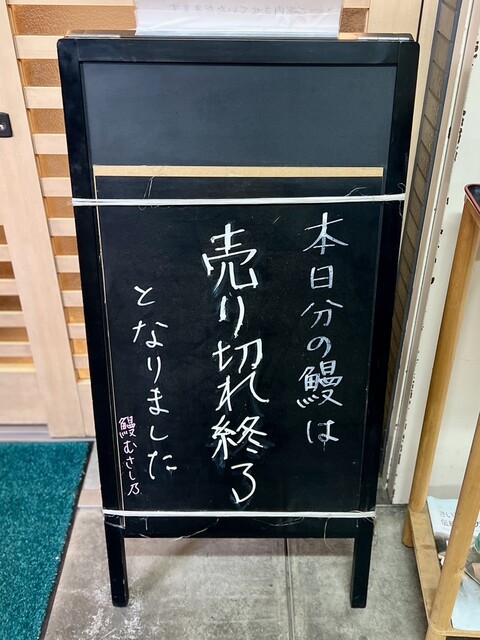 本日分の鰻は
売り切れ終了
となりました
鰻むさし乃